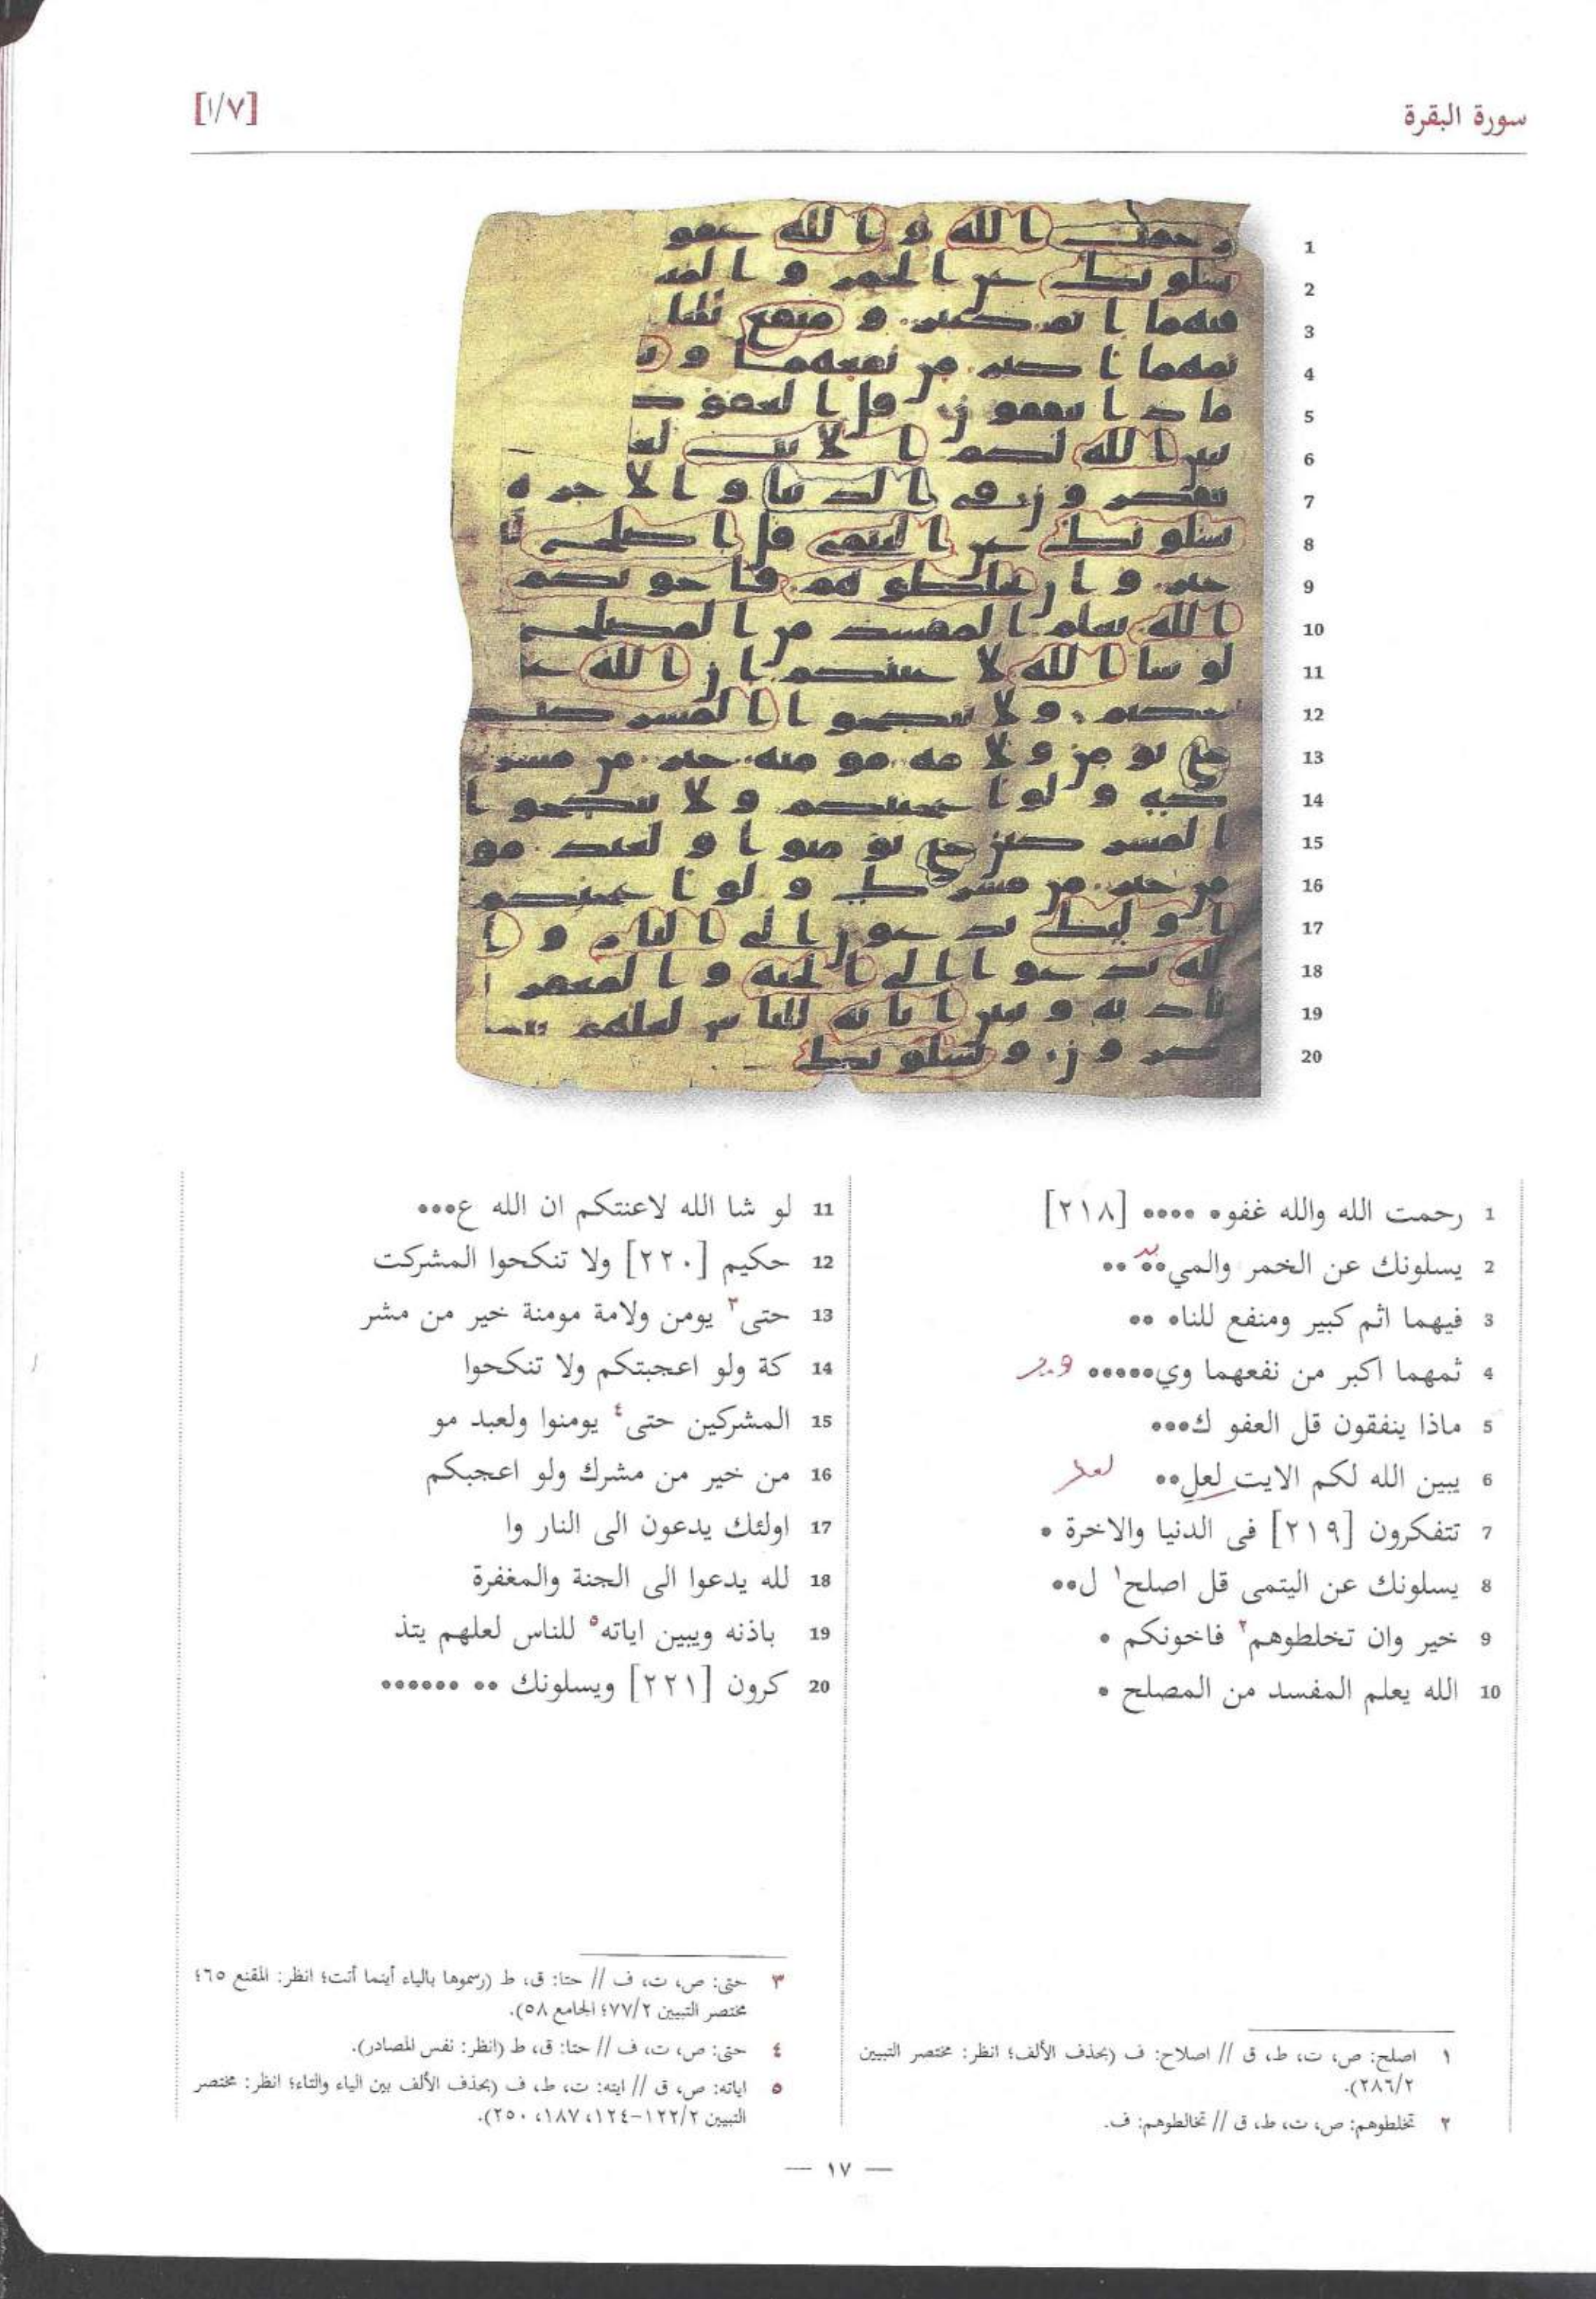 سورة البقرة
[١/٧]
1 رحمت الله والله غفو• •••• [٢١٨]
2 يسلونك عن الخمر والمي•• ••
3 فيهما اثم كبير ومنفع للنا• ••
4 ثمهما اكبر من نفعهما وي•••••
5 ماذا ينفقون قل العفو ك•••
6 يبين الله لكم الايت لعل••
7 تتفكرون [٢١٩] فى الدنيا والاخرة •
8 يسلونك عن اليتمى قل اصلح١ ل••
9 خير وان تخلطوهم٢ فاخونكم •
10 الله يعلم المفسد من المصلح •
11 لو شا الله لاعنتكم ان الله ع•••
12 حكيم [٢٢٠] ولا تنكحوا المشركت
13 حتى٣ يومن ولامة مومنة خير من مشر
14 كة ولو اعجبتكم ولا تنكحوا
15 المشركين حتى٤ يومنوا ولعبد مو
16 من خير من مشرك ولو اعجبكم
17 اولئك يدعون الى النار وا
18 لله يدعوا الى الجنة والمغفرة
19 باذنه ويبين اياته٥ للناس لعلهم يتذ
20 كرون [٢٢١] ويسلونك •• ••••••
١ اصلح: ص، ت، ط، ق // اصلاح: ف (بحذف الألف؛ انظر: مختصر التبيين
٢٨٦/٢).
٢ تخلطوهم: ص، ت، ط، ق // تخالطوهم: ف.
٣ حتى: ص، ت، ف // حتا: ق، ط (رسموها بالياء أينما أتت؛ انظر: المقنع ٦٥؛
مختصر التبيين ٧٧/٢؛ الجامع ٥٨).
٤ حتى: ص، ت، ف // حتا: ق، ط (انظر: نفس المصادر).
٥ اياته: ص، ق // ايته: ت، ط، ف (بحذف الألف بين الياء والتاء؛ انظر: مختصر
التبيين ١٢٢/٢-١٢٤، ١٨٧، ٢٥٠).
— ١٧ —